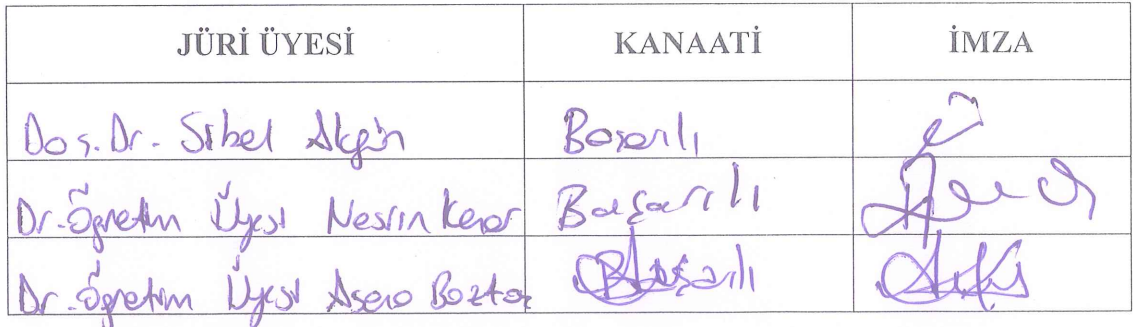 JÜRİ ÜYESİ KANAATİ İMZA
Doç. Dr. Sibel Akgün Başarılı
Dr. Öğretim Üyesi Nesrin Kenar Başarılı
Dr. Öğretim Üyesi Başarılı